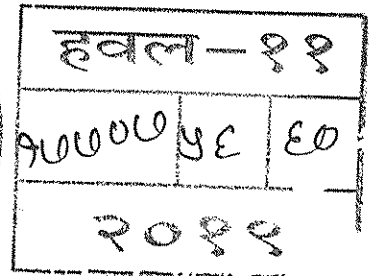 हवल-११
१७७०७ ५६ ६०
२०१९